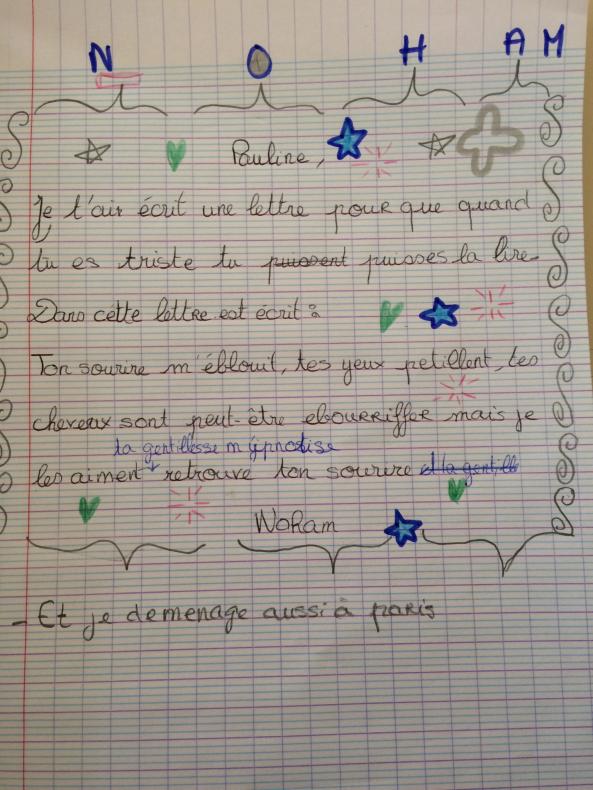 N O H A M
Pauline,
Je t'air écrit une lettre pour que quand
tu es triste tu puissent puisses la lire
Dans cette lettre est écrit :
Ton sourire m'éblouit, tes yeux petillent, tes
cheveux sont peut-être ebourriffer mais je
ta gentillesse m'ypnotise
les aiment + retrouve ton sourire et la gentill
Noham
- Et je demenage aussi à paris